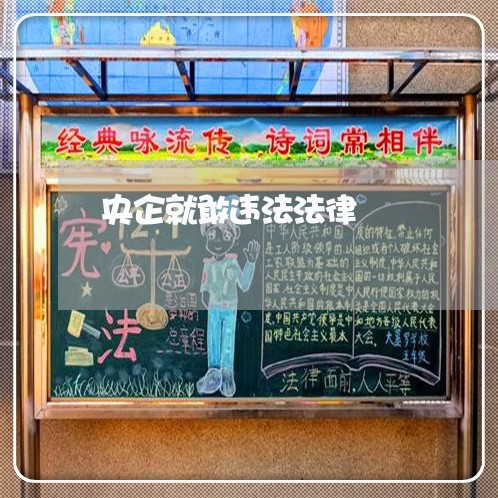 经典咏流传 诗词常相伴
央企就敢违法法律
宪
法
公平
公正
总章程
中华人民共和国
是工人阶级领导的,以
工农联盟为基础的
人民民主专政的社会主义
国家,社会主义制度是中
华人民共和国的根本制
度,中国共产党领导是中
国特色社会主义最本
质的特征,禁止任何
组织或者个人破坏社会
主义制度,中华人民共和
国的一切权利属于人民,
人民行使国家权力的机
关是全国人民代表大会
和地方各级人民代表
大会。
五年级
法律面前,人人平等